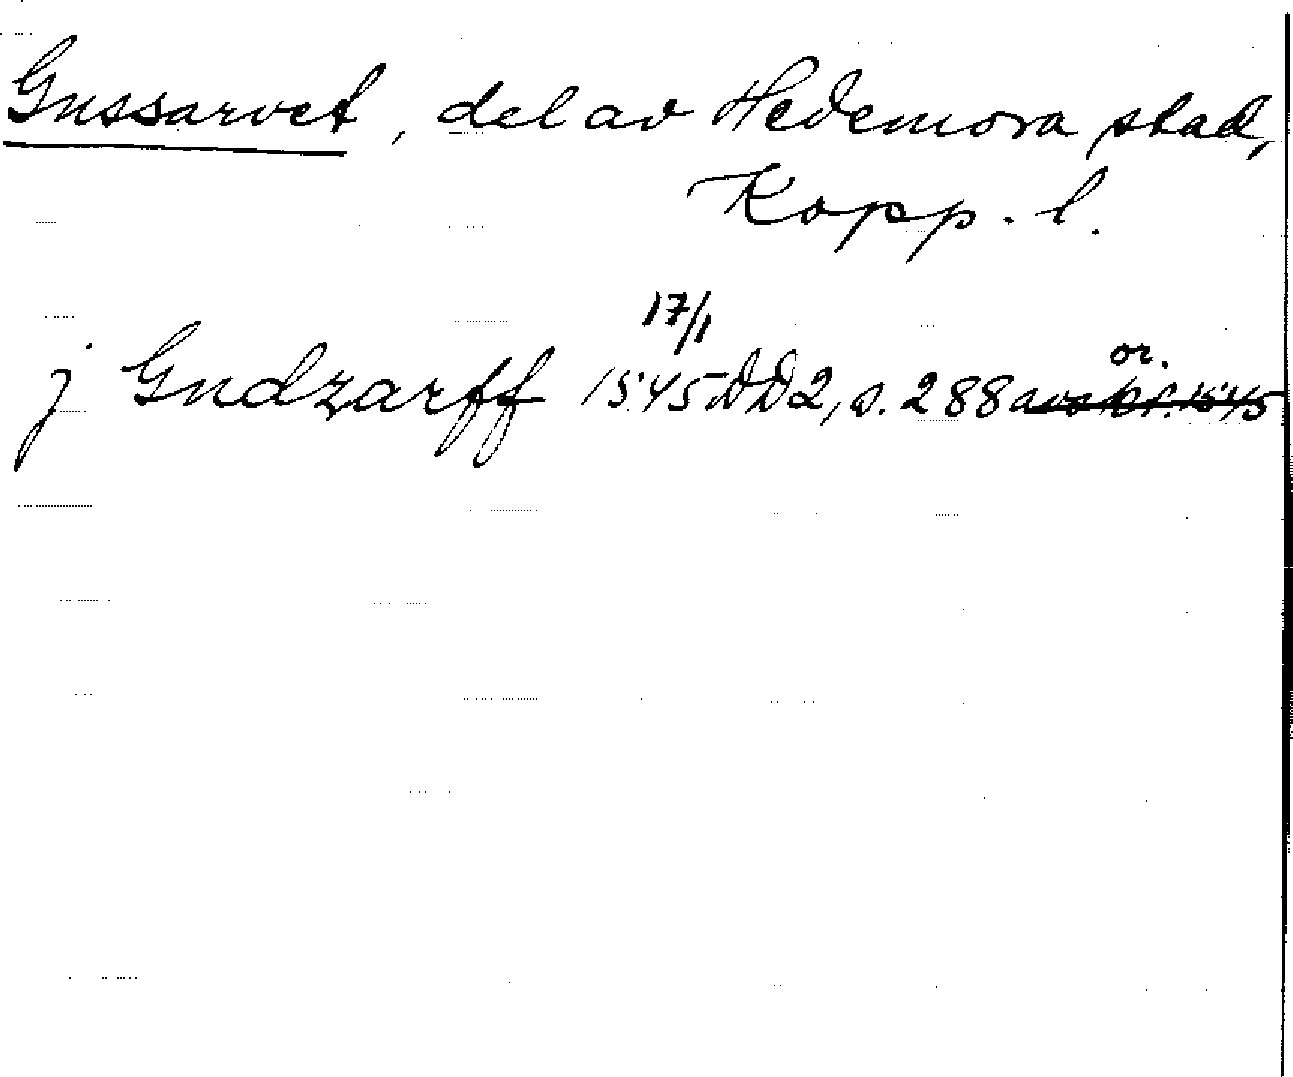 Gussarvet, del av Hedemora stad,
Kopp. l.
17/1
j Gudzarff 1545 DD2, s. 288 avskr. 1545
or.